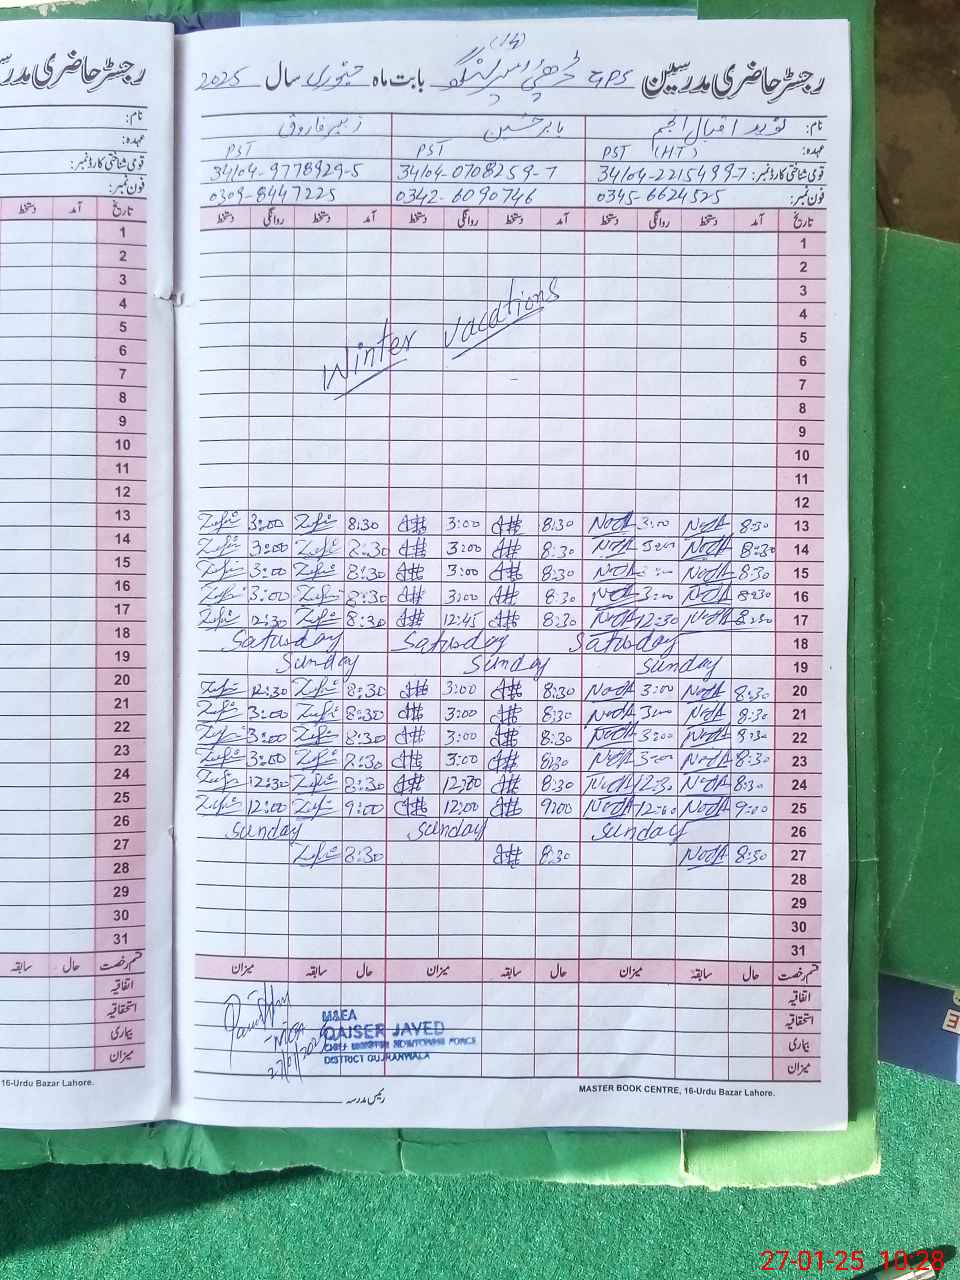 رجسٹر حاضری مدرسین GPS بابت ماہ جنوری سال 2025
(14)
نام: نوید اقبال انجم بابر حسین زبیر فاروق
عہدہ: PST (HT) PST PST
قومی شناختی کارڈ نمبر: 34104-2215499-7 34104-0708259-7 34104-9778929-5
فون نمبر: 0345-6624525 0342-6090746 0309-8447225
تاریخ آمد دستخط روانگی دستخط آمد دستخط روانگی دستخط آمد دستخط روانگی دستخط
1
2
3
4
5
6
7
8
9
10
11
12
Winter Vacations
13 8:30 3:00 8:30 3:00 8:30 3:00
14 8:30 3:00 8:30 3:00 8:30 3:00
15 8:30 3:00 8:30 3:00 8:30 3:00
16 8:30 3:00 8:30 3:00 8:30 3:00
17 8:30 12:30 8:30 12:45 8:30 12:30
18 Saturday Saturday Saturday
19 Sunday Sunday Sunday
20 8:30 3:00 8:30 3:00 8:30 12:30
21 8:30 3:00 8:30 3:00 8:30 3:00
22 8:30 3:00 8:30 3:00 8:30 3:00
23 8:30 3:00 8:30 3:00 8:30 3:00
24 8:30 12:30 8:30 12:00 8:30 12:30
25 9:00 12:00 9:00 12:00 9:00 12:00
26 Sunday Sunday Sunday
27 8:30 8:30 8:30
28
29
30
31
قسم رخصت حال سابقہ میزان حال سابقہ میزان حال سابقہ میزان
اتفاقیہ
استحقاقیہ
بیماری
میزان
M&EA
QAISER JAVED
CHIEF MINISTER MONITORING FORCE
DISTRICT GUJRANWALA
رئیس مدرسہ
MASTER BOOK CENTRE, 16-Urdu Bazar Lahore.
رجسٹر حاضری مدرسین
نام:
عہدہ:
قومی شناختی کارڈ نمبر:
فون نمبر:
تاریخ آمد دستخط
1
2
3
4
5
6
7
8
9
10
11
12
13
14
15
16
17
18
19
20
21
22
23
24
25
26
27
28
29
30
31
قسم رخصت حال سابقہ
اتفاقیہ
استحقاقیہ
بیماری
میزان
16-Urdu Bazar Lahore.
27-01-25 10:28